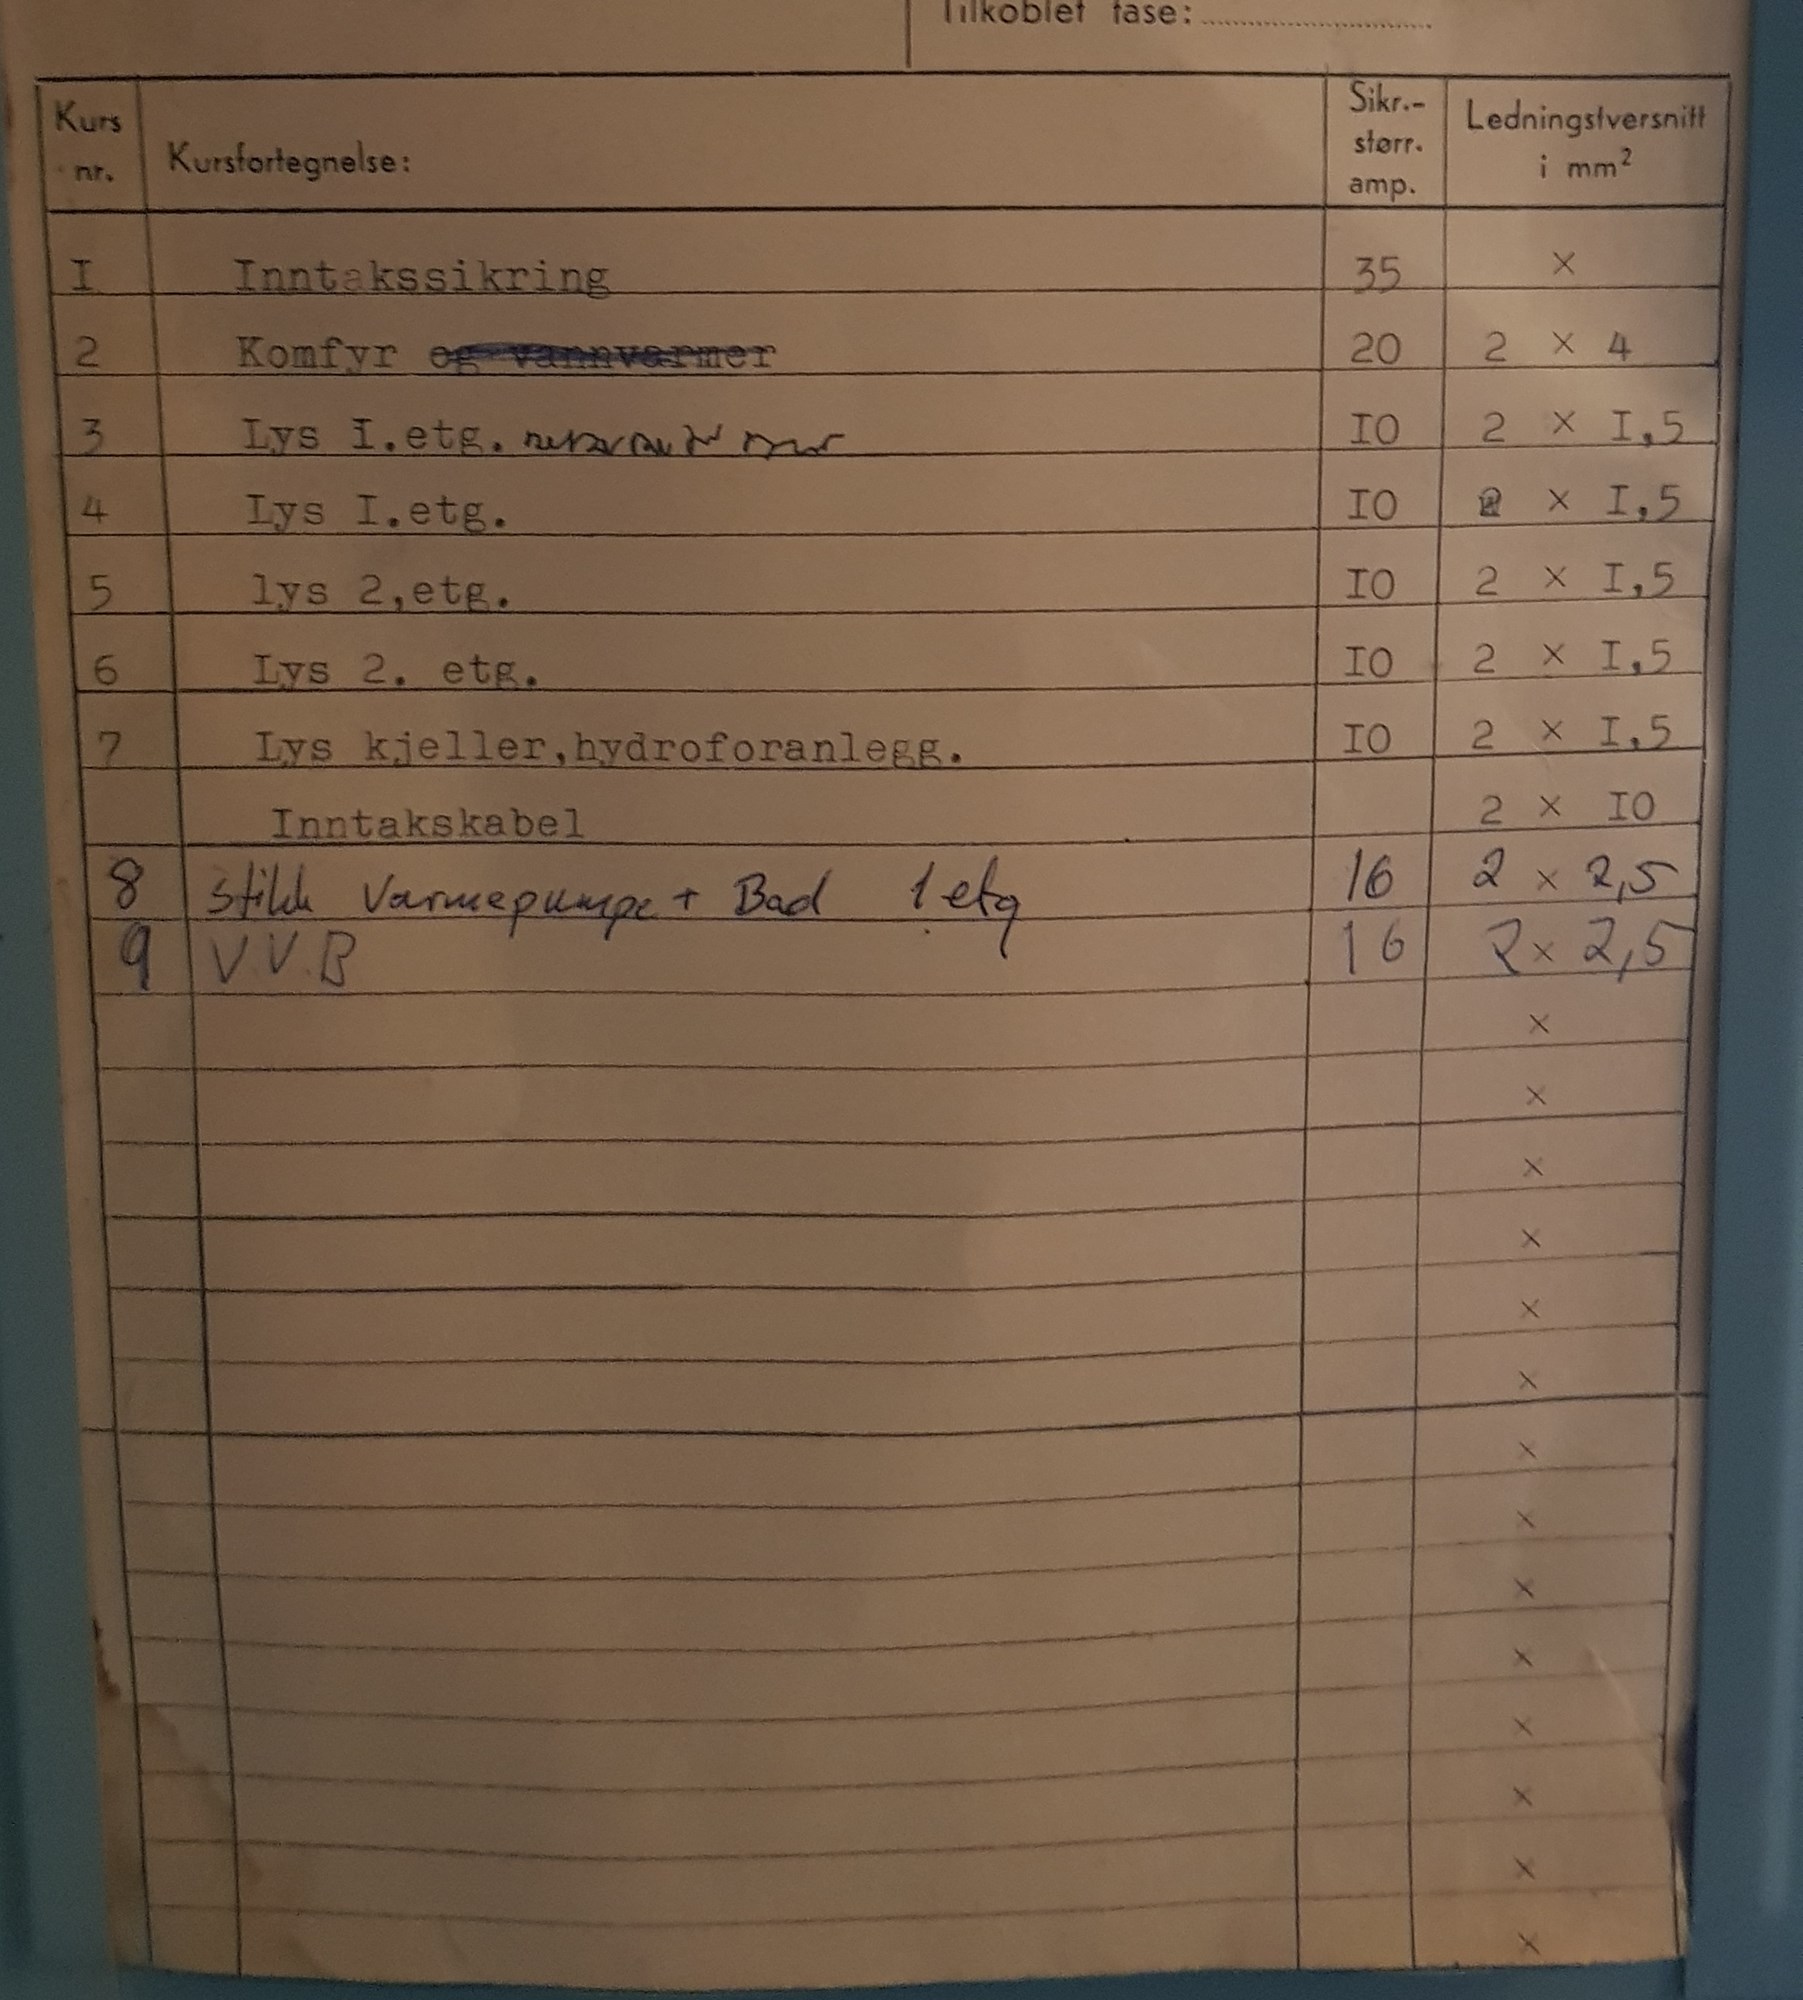 Tilkoblet fase:
Kurs nr. Kursfortegnelse: Sikr.-størr. amp. Ledningstversnitt i mm²
I Inntakssikring 35 ×
2 Komfyr og vannvarmer 20 2 × 4
3 Lys I.etg. IO 2 × I,5
4 Lys I.etg. IO 2 × I,5
5 lys 2,etg. IO 2 × I,5
6 Lys 2. etg. IO 2 × I,5
7 Lys kjeller,hydroforanlegg. IO 2 × I,5
Inntakskabel 2 × IO
8 stikk Varmepumpe + Bad 1 etg 16 2 × 2,5
9 V.V.B 16 2 × 2,5
×
×
×
×
×
×
×
×
×
×
×
×
×
×